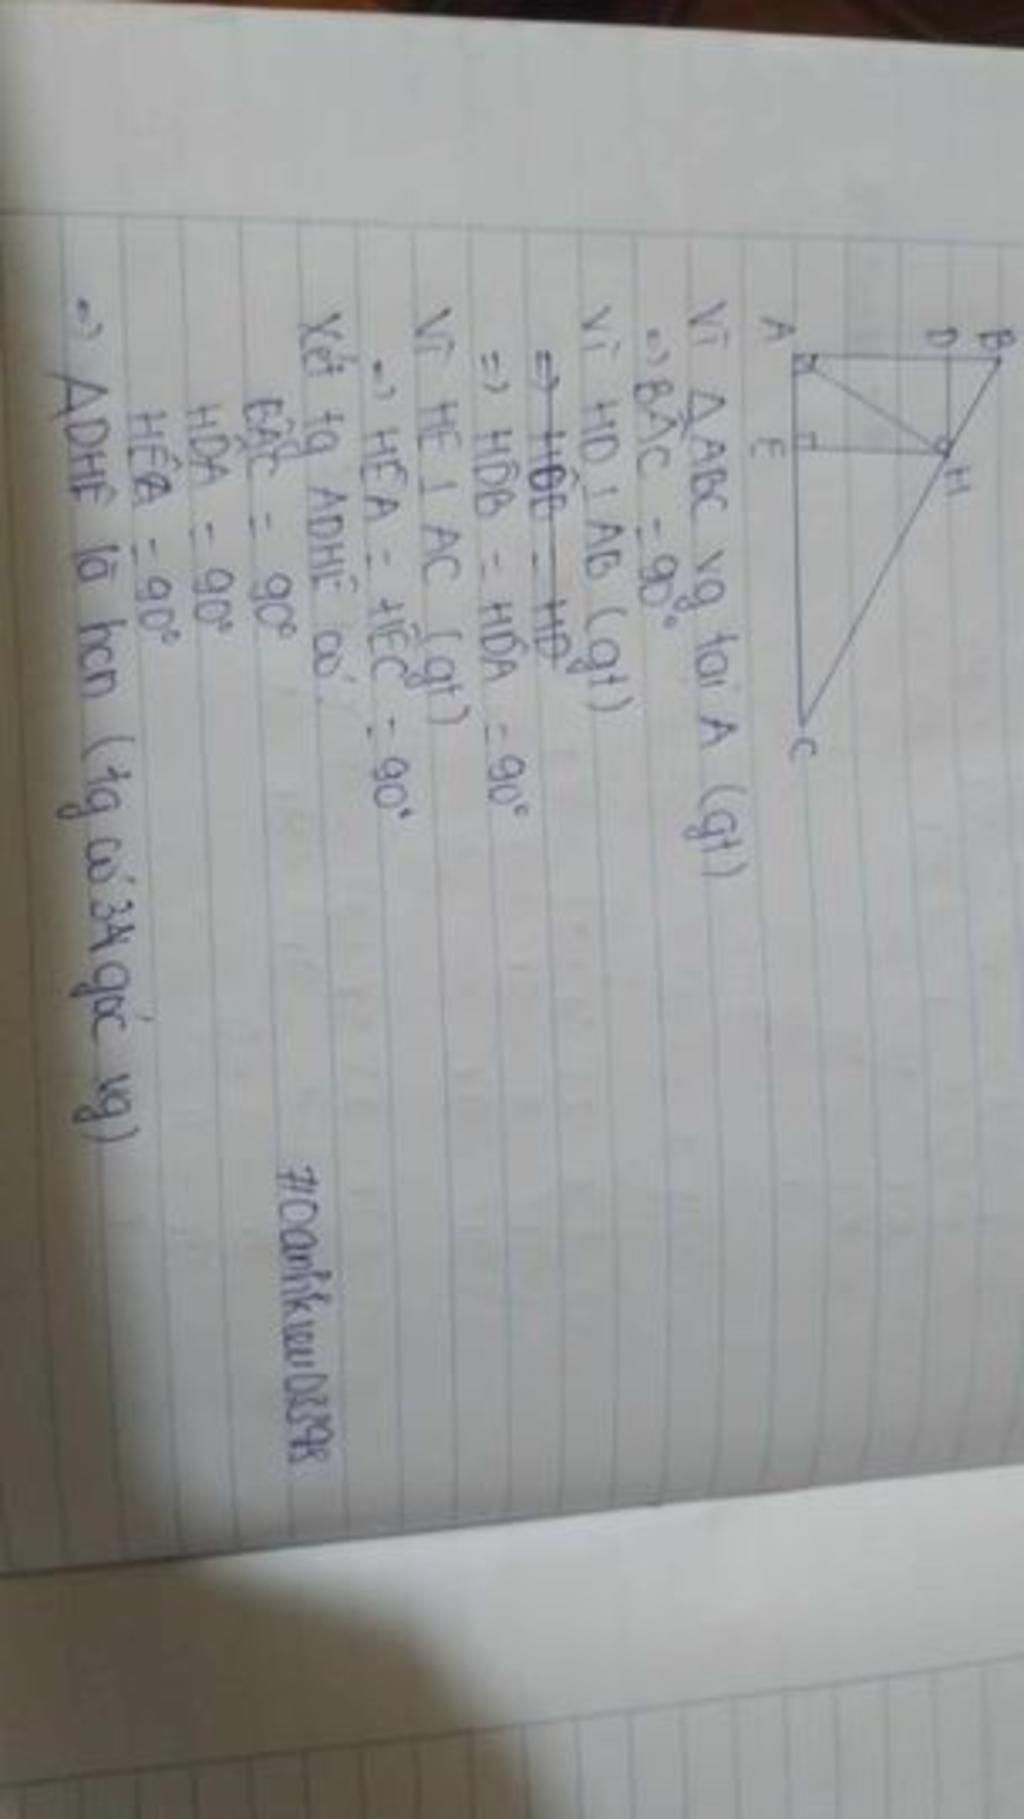 B
D
H
A
E
C
Vì ΔABC vg tại A (gt)
=> BÂC = 90°
Vì HD ⊥ AB (gt)
=> HD̂B = HD
=> HD̂B = HD̂A = 90°
Vì HE ⊥ AC (gt)
=> HÊA = HÊC = 90°
Xét tg ADHE có
BÂC = 90°
HD̂A = 90°
HÊA = 90°
=> ADHE là hcn (tg có 3 góc vg)